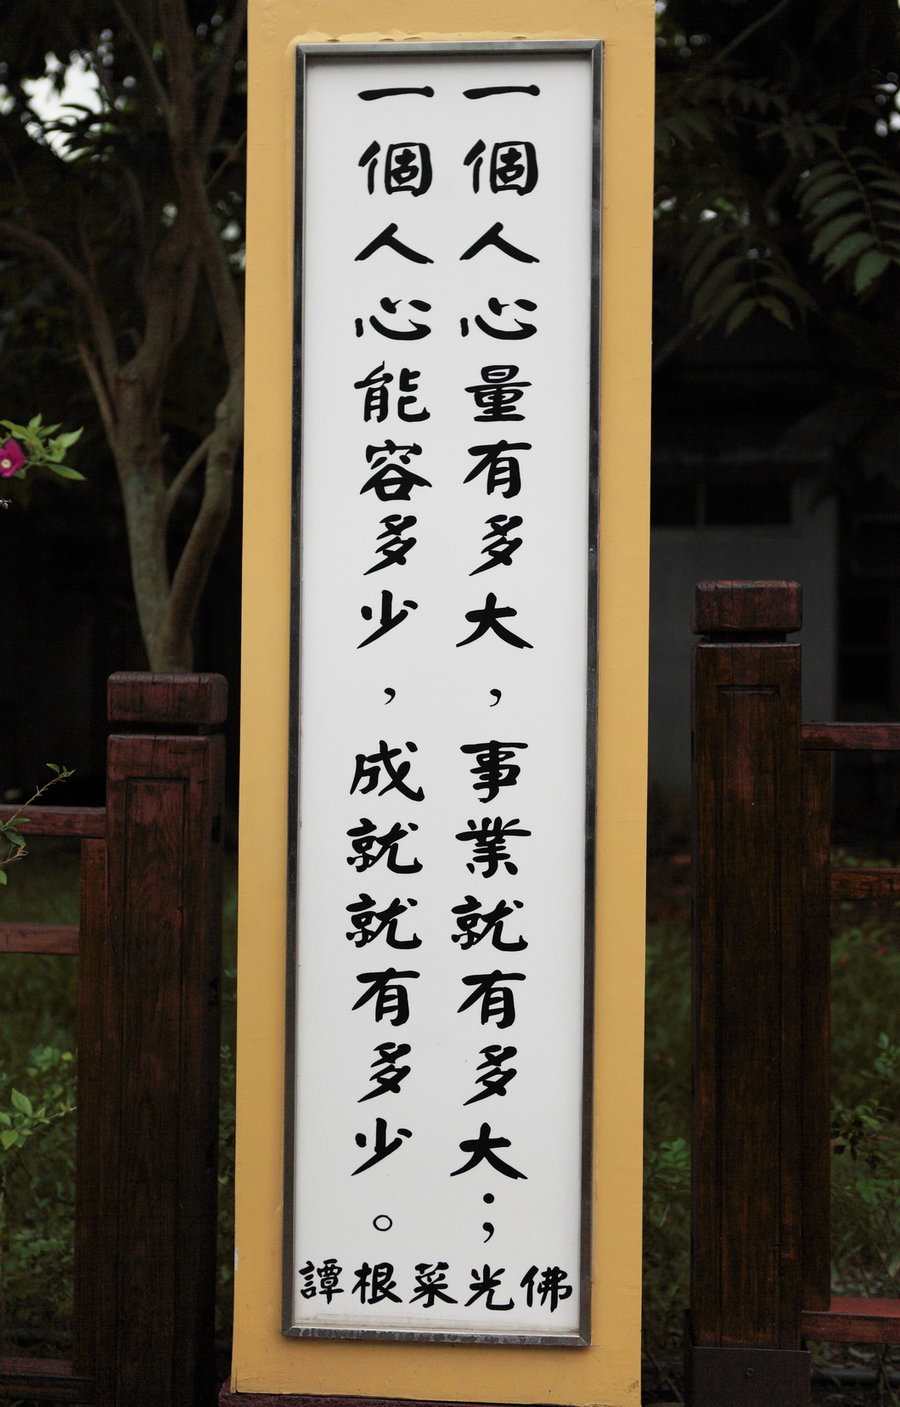 一個人心量有多大，事業就有多大；
一個人心能容多少，成就就有多少。
佛光菜根譚